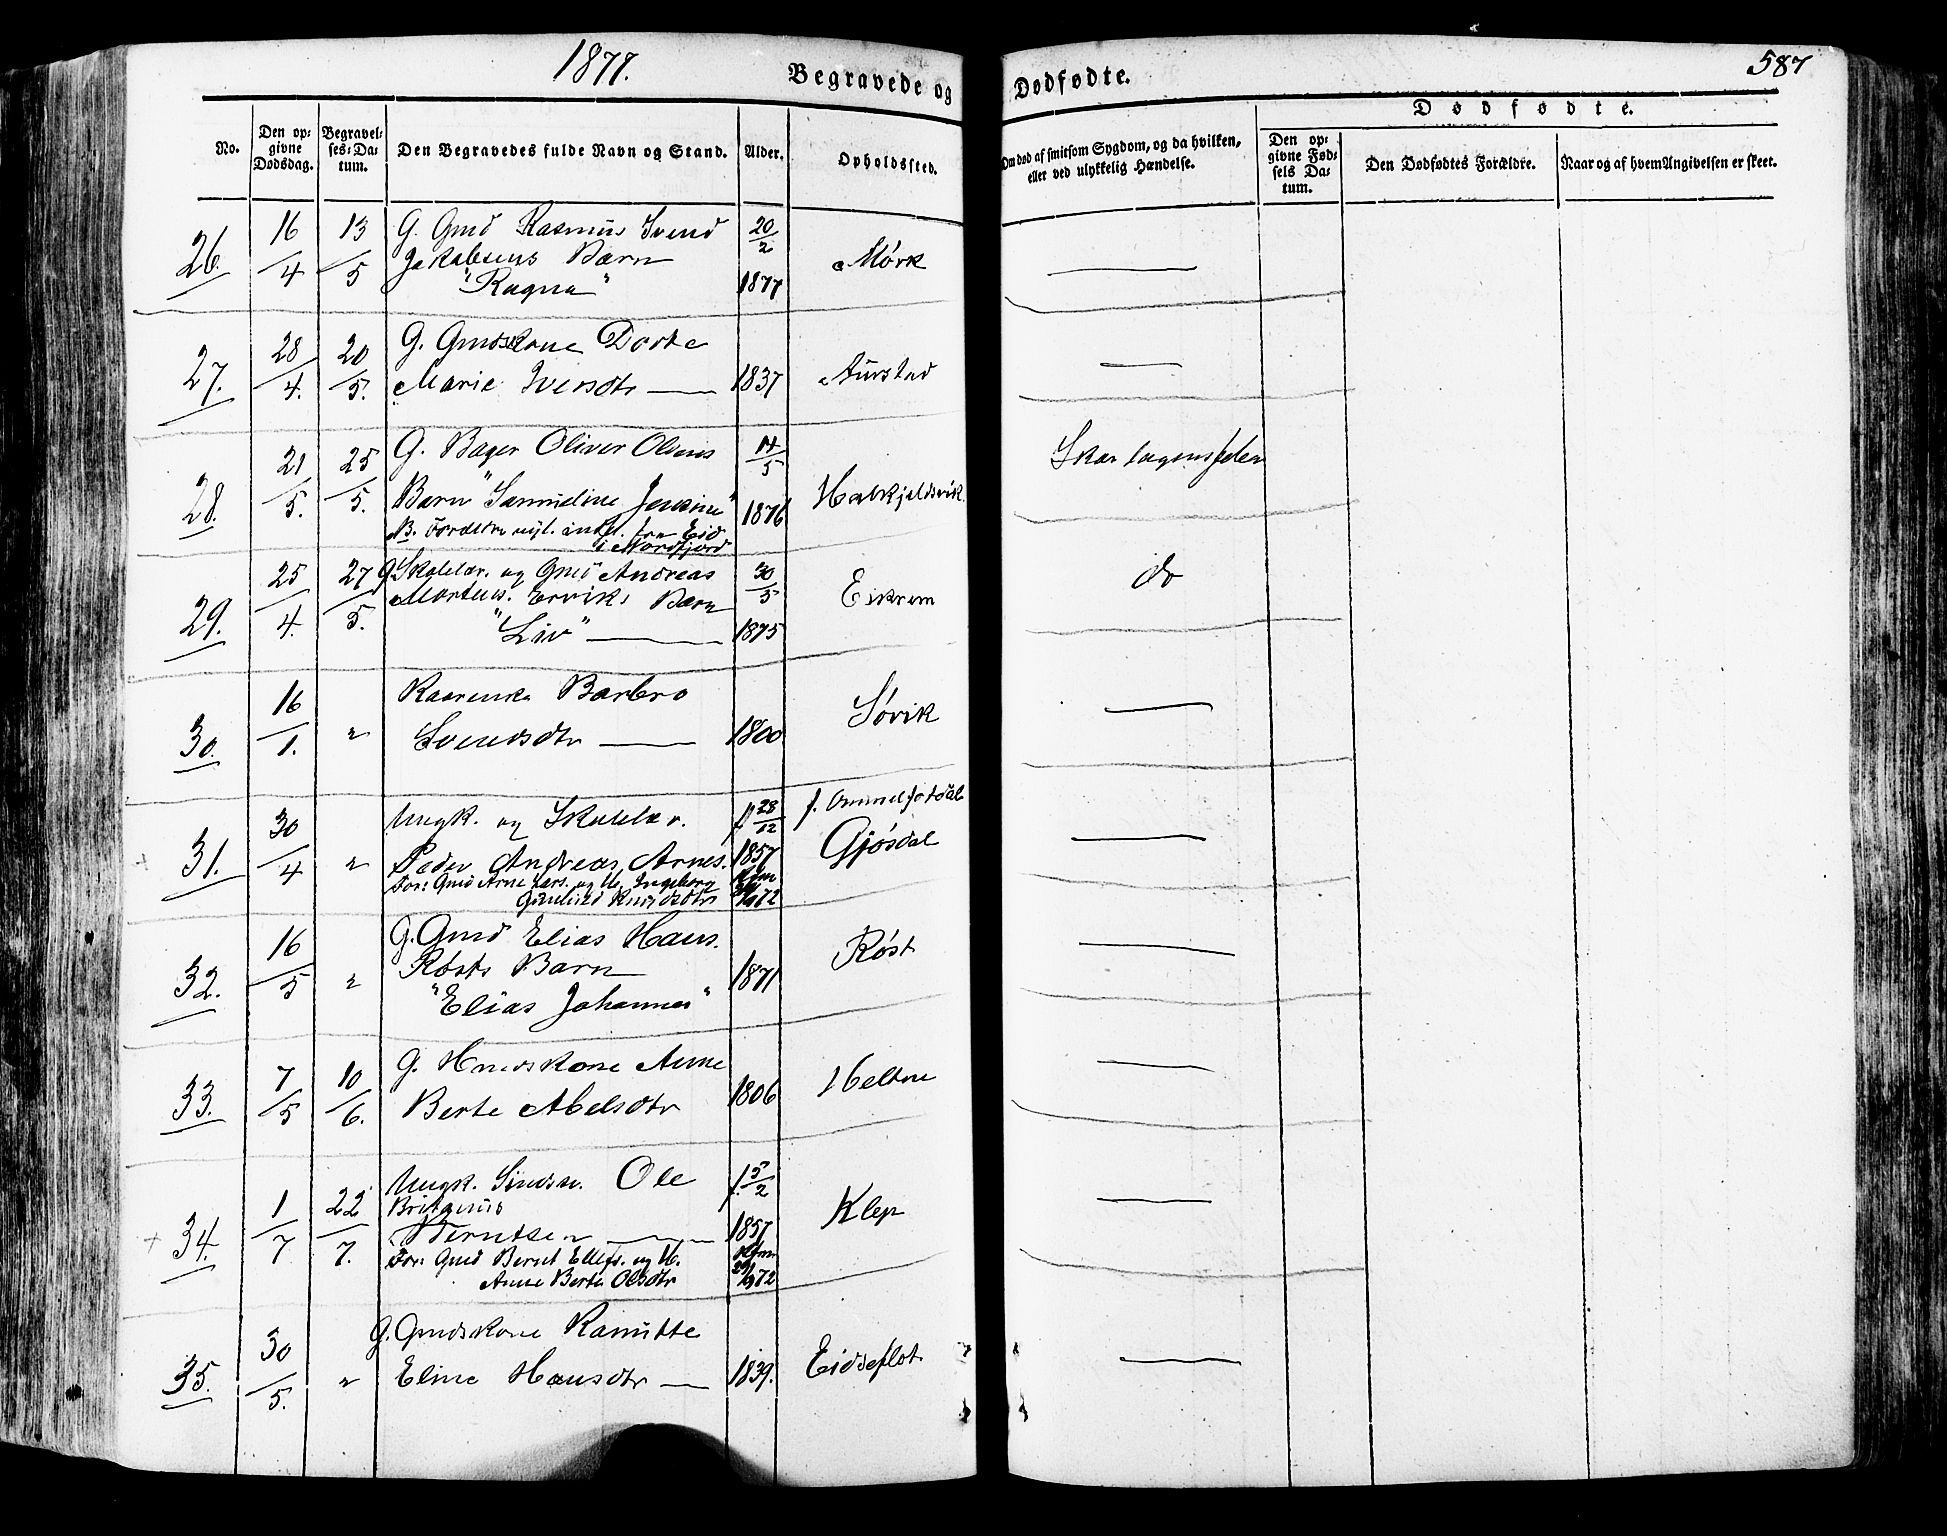 1877.
Begravede og Dødfødte.
587
No.
Den op-
givne
Dødsdag.
Begravel-
ses-Da-
tum.
Den Begravedes fulde Navn og Stand.
Alder.
Opholdsted.
Om død af smitsom Sygdom, og da hvilken,
eller ved ulykkelig Hændelse.
Dødfødte.
Den op-
givne Fød-
sels Da-
tum.
Den Dødfødtes Forældre.
Naar og af hvem Angivelsen er skeet.
26. 16/4 13/5 G. Gmd Rasmus Svend 20/2
Jakobsens Barn Mørk
"Ragna" 1877
27. 28/4. 20/5. G. Gmdskone Dorte
Marie Iversdtr 1837 Aurstad
28. 21/5. 25/5. G. Bager Oliver Olsens 14/5 Skarlagensfeber
Barn "Samueline Jensine" 1876 Halkjeldsvik.
NB. Forældre nyl. indfl. fra Eid
i Nordfjord
29. 25/4. 27/5. G. Skolelær. og Gmd Andreas 30/5 do
Martins. Erviks Barn Eikrem
"Liv" 1875
30. 16/1. " Kaarenke Barbro
Svendsdtr 1800 Søvik
31. 30/4 " Ungk. og Skolelær. f. 28/12 f.
Peder Andreas Arnes. 1857 Gjøsdal
For: Gmd Arne Lars. og H. Ingeborg
Gunhild Knudsdtr 72
32. 16/5 " G. Gmd Elias Hans. Røst
Røsts Barn 1871
"Elias Johannes"
33. 7/5 10/6. G. Hmdskone Anne
Berte Abelsdtr 1806 Heltne
34. 1/7 22/7. Ungk. Ole f. 5/2
Britanus Klep
Berntsen 1857
For: Gmd Bernt Ellefs. og H.
Anne Berte Olsdtr 72
35. 30/5. " G. Gmdskone Ranitte
Eline Hansdtr 1839. Eidseflot